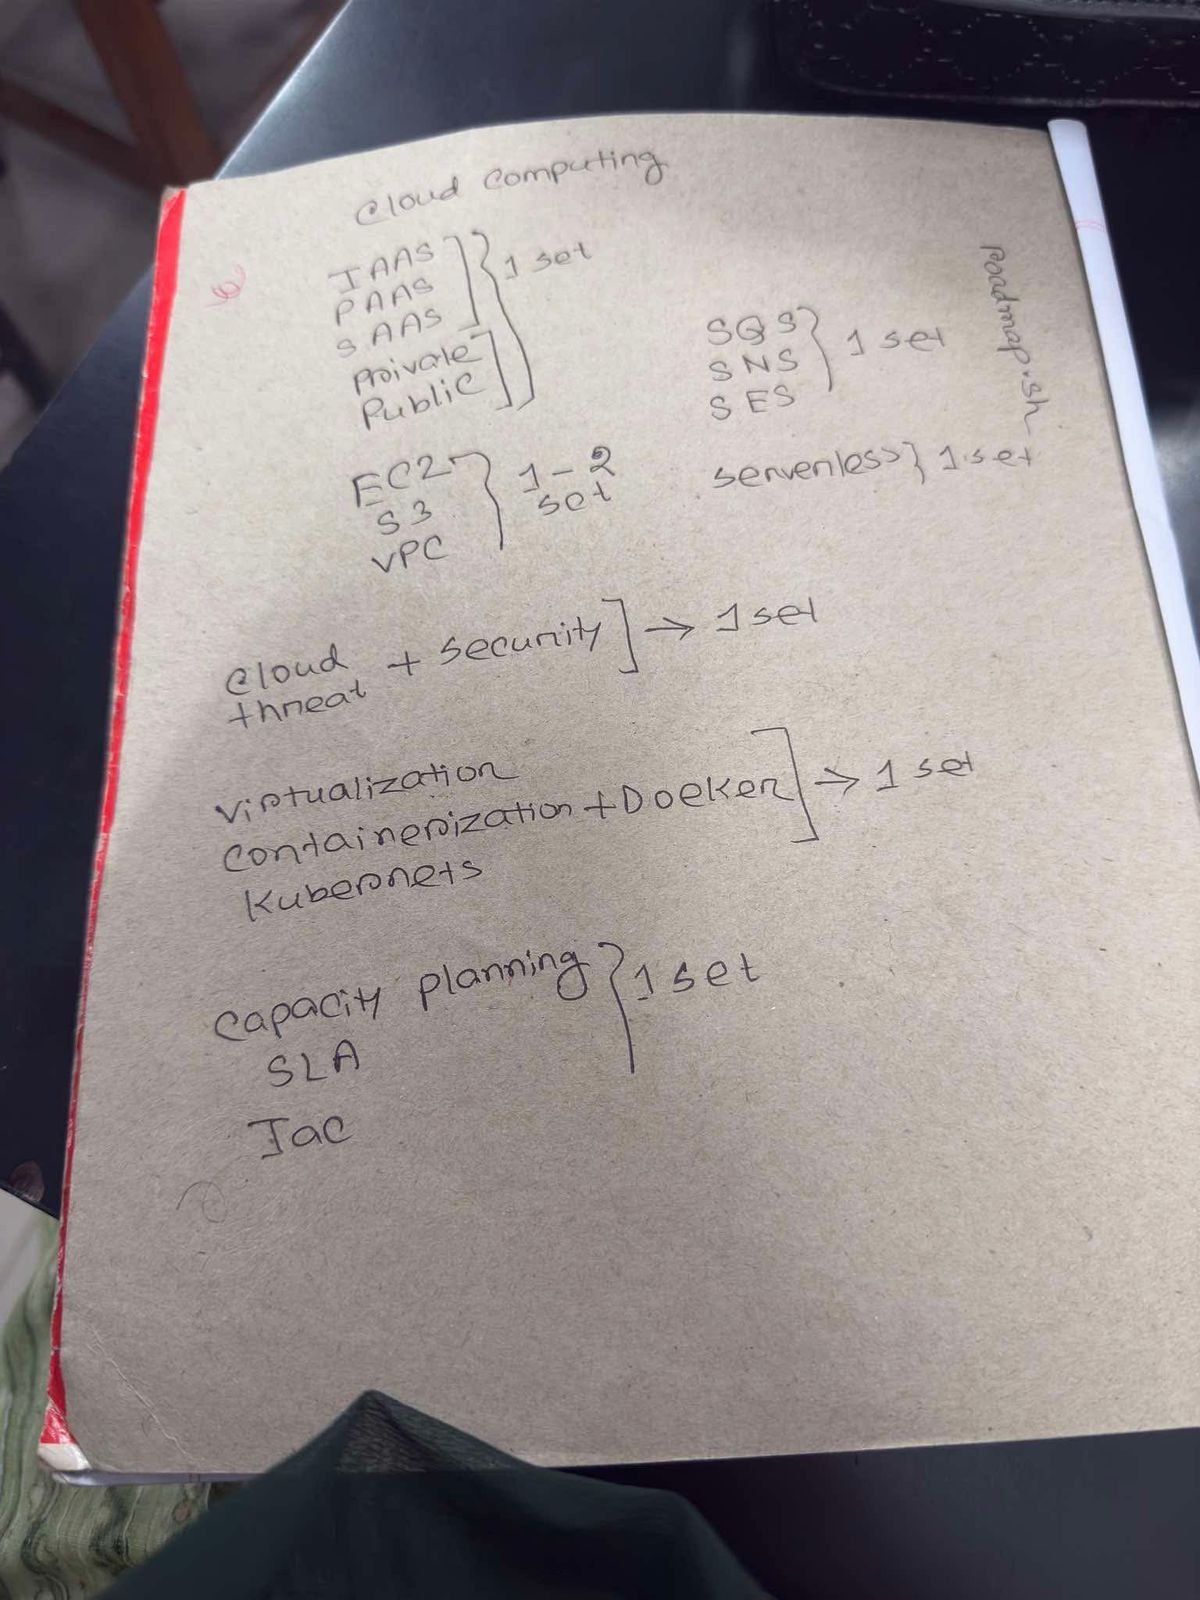 Cloud Computing
IAAS
PAAS
SAAS
Private
Public
1 set
SQS
SNS
SES
1 set
roadmap.sh
EC2
S3
VPC
1-2
set
serverless} 1 set
Cloud
threat + security] → 1 set
Virtualization
Containerization + Docker] → 1 set
Kubernets
Capacity planning
SLA
1 set
Iac